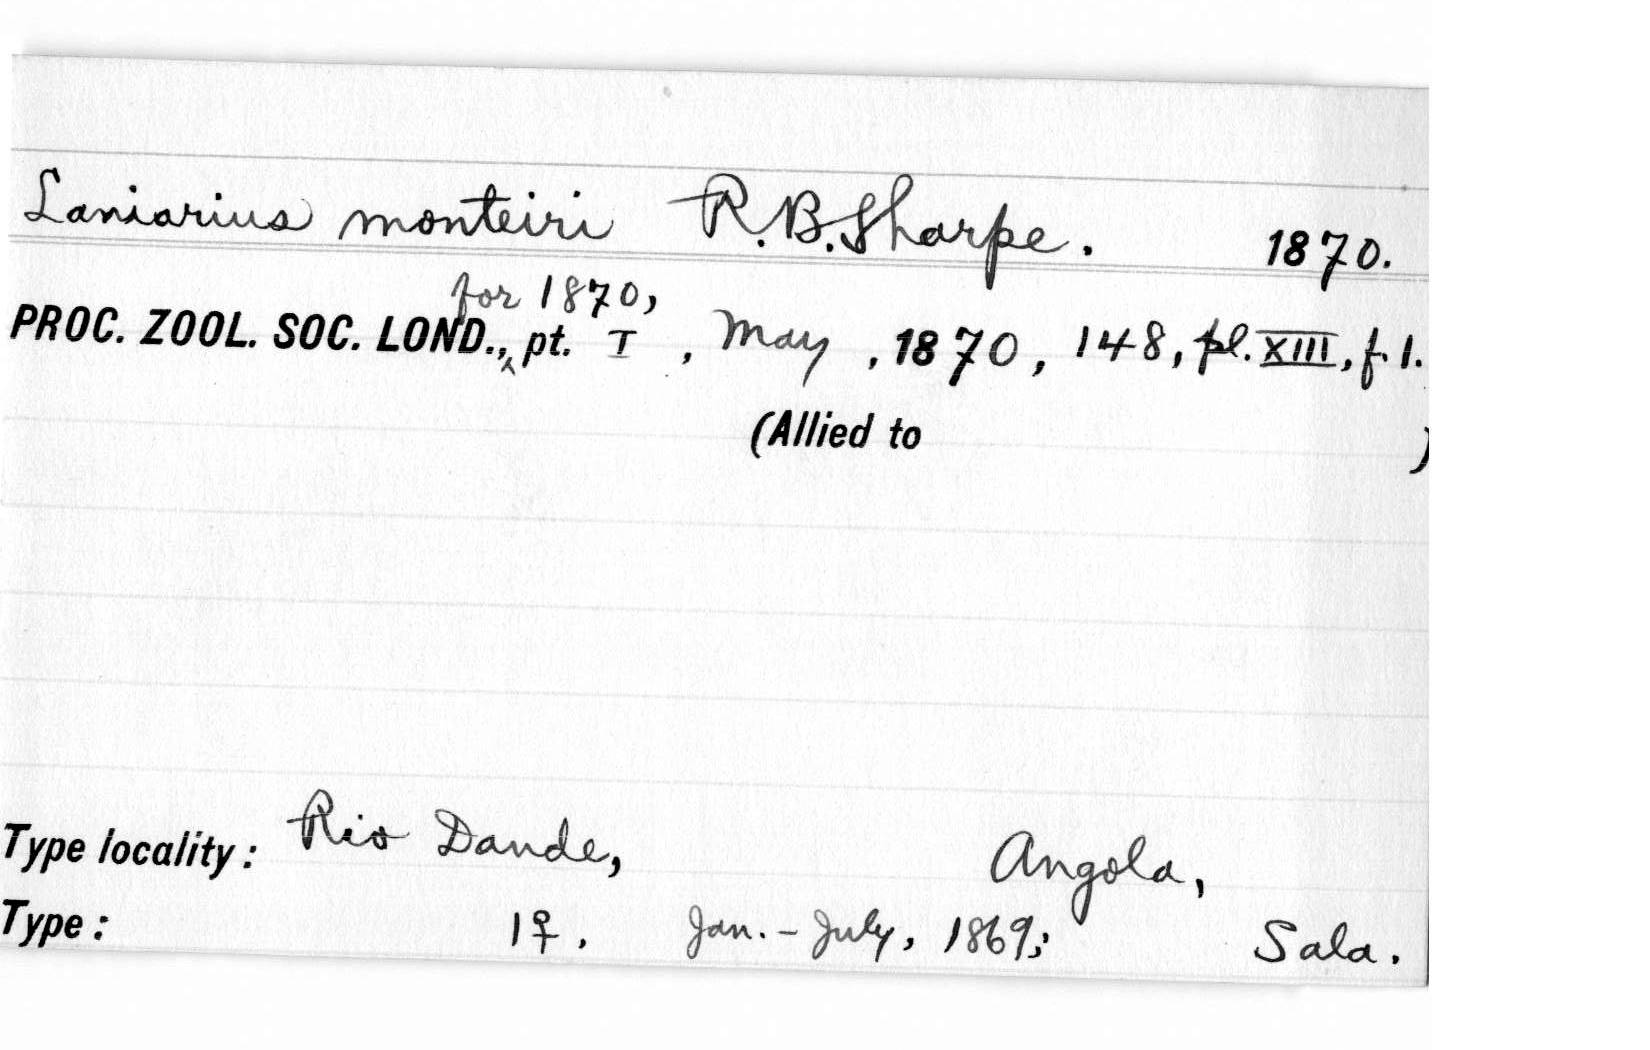 Laniarius monteiri R.B.Sharpe. 1870.
for 1870,
PROC. ZOOL. SOC. LOND., ‸ pt. I , May , 1870, 148, pl. XIII, f. 1.
(Allied to )
Type locality: Rio Dande, Angola,
Type: 1♀. Jan. - July, 1869; Sala.